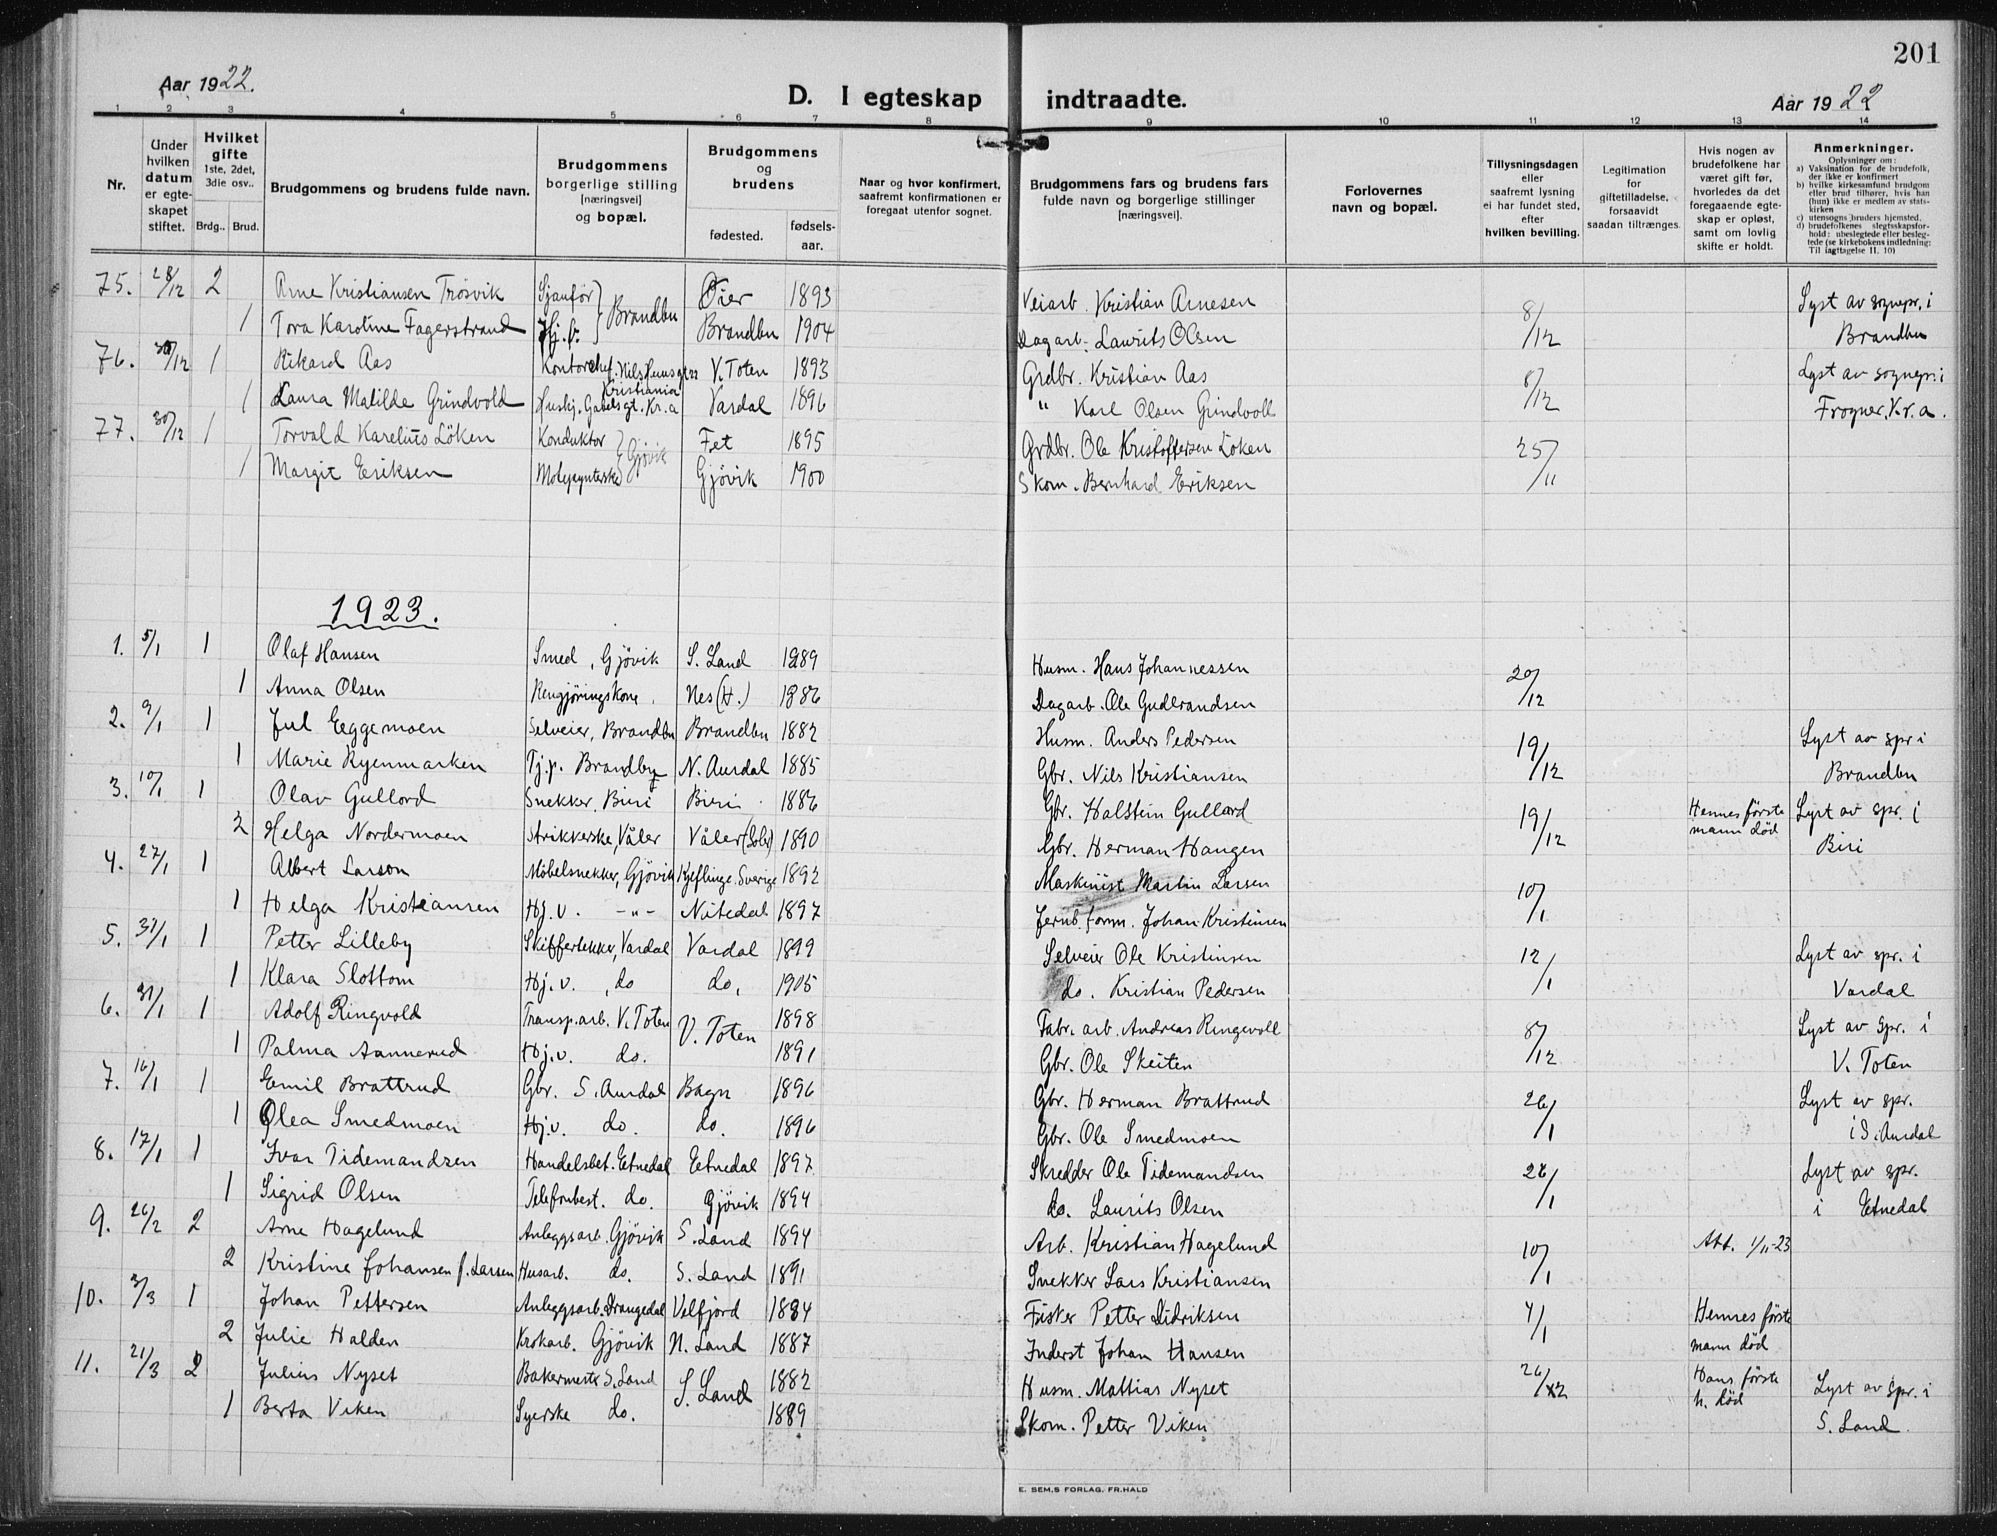 201
Aar 1922.
D. I egteskap indtraadte.
Aar 1922
1 2 3 4 5 6 7 8 9 10 11 12 13 14
Nr.
Under hvilken datum er egteskapet stiftet.
Hvilket gifte 1ste, 2det, 3die osv..
Brdg.. Brud.
Brudgommens og brudens fulde navn.
Brudgommens borgerlige stilling [næringsvei] og bopæl.
Brudgommens og brudens
fødested. fødselsaar.
Naar og hvor konfirmert, saafremt konfirmationen er foregaat utenfor sognet.
Brudgommens fars og brudens fars fulde navn og borgerlige stillinger [næringsvei].
Forlovernes navn og bopæl.
Tillysningsdagen eller saafremt lysning ei har fundet sted, efter hvilken bevilling.
Legitimation for giftetilladelse, forsaavidt saadan tiltrænges.
Hvis nogen av brudefolkene har været gift før, hvorledes da det foregaaende egteskap er opløst, samt om lovlig skifte er holdt.
Anmerkninger.
Oplysninger om:
a) Vaksination for de brudefolk, der ikke er konfirmert
b) hvilke kirkesamfund brudgom eller brud tilhører, hvis han (hun) ikke er medlem av statskirken
c) utensogns bruders hjemsted.
d) brudefolkenes slegtsskapsforhold: ubeslegtede eller beslegtede (se kirkebokens indledning: Til iagttagelse II. 10)
75. 28/12 2 Arne Kristiansen Trösvik Sjauför Brandbu Öier 1893 Veiarb. Kristian Arnesen 8/12 Lyst av sognepr. i
1 Tora Karoline Fagerstrand Hj. v. Brandbu 1904 Dagarb. Laurits Olsen Brandbu
76. 30/12 1 Rikard Aas Kontorchef. Nils Juelsgt 22 Kristiania V. Toten 1893 Grdbr. Kristian Aas 8/12 Lyst av sognepr. i
1 Laura Matilde Grindvold Hushj. Gabelsgt. Kr.a Vardal 1896 " Karl Olsen Grindvoll Frogner, Kr.a.
77. 30/12 1 Torvald Karelius Löken Konduktor Gjövik Fet 1895 Grdbr. Ole Kristoffersen Löken 25/11
1 Margit Eriksen Motepynterske Gjövik 1900 Skom. Bernhard Eriksen
1923.
1. 5/1 1 Olaf Hansen Smed, Gjövik S. Land 1889 Husm. Hans Johannessen 20/12
1 Anna Olsen Rengjöringskone. Nes (H.) 1886 Dagarb. Ole Gudbrandsen
2. 9/1 1 Jul Eggemoen Selveier, Brandbu Brandbu 1882 Husm. Anders Pedersen 19/12 Lyst av spr i
1 Marie Ryenmarken Tj.p. Brandby N. Aurdal 1885 Gbr. Nils Kristiansen Brandbu
3. 10/1 1 Olav Gullord Snekker, Biri Biri 1886 Gbr. Halstein Gullord 19/12 Hennes förste mann död Lyst av spr. i
2 Helga Nordermoen Strikkerske, Våler Våler (Solör) 1890 Gbr. Herman Haugen Biri
4. 27/1 1 Albert Larson Möbelsnekker, Gjövik Kjeflinge. Sverige 1892 Maskinist Martin Larsen 10/1
1 Helga Kristiansen Hj.v. -"- Nitedal 1897 Jernb. form. Johan Kristiansen
5. 31/1 1 Petter Lilleby Skiffertekker, Vardal Vardal 1899 Selveier Ole Kristinsen 12/1 Lyst av spr. i
1 Klara Slottom Hj.v. , do do. 1905 do. Kristian Pedersen Vardal
6. 31/1 1 Adolf Ringvold Transp.arb. V. Toten V. Toten 1898 Fabr. arb. Andreas Ringevoll 8/12 Lyst av spr. i
1 Palma Aannerud Hj.v. do. 1891 Gbr. Ole Skeiten V. Toten
7. 16/1 1 Emil Brattrud Gbr. S. Aurdal Bagn 1896 Gbr. Herman Brattrud 26/1 Lyst av spr.
1 Olea Smedmoen Hj.v. do. do. 1896 Gbr. Ole Smedmoen i S. Aurdal
8. 17/1 1 Ivar Tidemandsen Handelsbet. Etnedal Etnedal 1897 Skredder Ole Tidemandsen 28/1 Lyst av spr.
1 Sigrid Olsen Telefonbest. do. Gjövik 1894 do. Laurits Olsen i Etnedal
9. 26/2 2 Arne Hagelund Anleggsarb. Gjövik S. Land 1894 Arb. Kristian Hagelund 10/1 Att. 1/11-23
2 Kristine Johansen f. Larsen Husarb. do. S. Land 1891 Snekker Lars Kristiansen
10. 3/3 1 Johan Pettersen Anleggsarb. Drangedal Velfjord 1884 Fisker Petter Didriksen 4/1 Hennes förste mann död
2 Julie Halden Krokarb. Gjövik N. Land 1887 Inderst Johan Hansen
11. 21/3 2 Julius Nyset Bakermester S. Land S. Land 1882 Husm. Mattias Nyset 26/2 Hans förste h. död Lyst av spr. i
1 Berta Viken Syerske do. 1889 Skom. Petter Viken S. Land
E. SEM,S FORLAG, FR.HALD